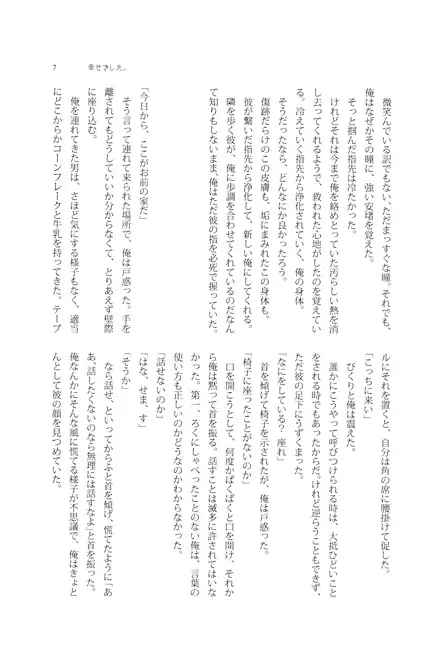 7 幸せでした。
微笑んでいる訳でもない、ただまっすぐな瞳。それでも、
俺はなぜかその瞳に、強い安堵を覚えた。
そっと掴んだ指先は冷たかった。
けれどそれは今まで俺を絡めとっていた汚らしい熱を消
し去ってくれるようで、救われた心地がしたのを覚えてい
る。冷えていく指先から浄化されていく、俺の身体。
そうだったなら、どんなにか良かったろう。
傷跡だらけのこの皮膚も、垢にまみれたこの身体も。
彼が繋いだ指先から浄化して、新しい俺にしてくれる。
隣を歩く彼が、俺に歩調を合わせてくれているのだなん
て知りもしないまま、俺はただ彼の指を必死で握っていた。
「今日から、ここがお前の家だ」
そう言って連れて来られた場所で、俺は戸惑った。手を
離されてもどうしていいか分からなくて、とりあえず壁際
に座り込む。
俺を連れてきた男は、さほど気にする様子もなく、適当
にどこからかコーンフレークと牛乳を持ってきた。テーブ
ルにそれを置くと、自分は角の席に腰掛けて促した。
「こっちに来い」
びくりと俺は震えた。
誰かにこうやって呼びつけられる時は、大抵ひどいこと
をされる時でもあったからだ。けれど逆らうこともできず、
ただ彼の足下にうずくまった。
「なにをしている？座れ」
首を傾げて椅子を示されたが、俺は戸惑った。
「椅子に座ったことがないのか」
口を開こうとして、何度かぱくぱくと口を開け、それか
ら俺は黙って首を振る。話すことは滅多に許されてはいな
かった。第一、ろくにしゃべったことのない俺は、言葉の
使い方も正しいのかどうなのかわからなかった。
「話せないのか」
「はな、せま、す」
「そうか」
なら話せ、といってからふと首を傾げ、慌てたように「あ
あ、話したくないのなら無理には話すなよ」と首を振った。
俺なんかにそんな風に慌てる様子が不思議で、俺はきょと
んとして彼の顔を見つめていた。